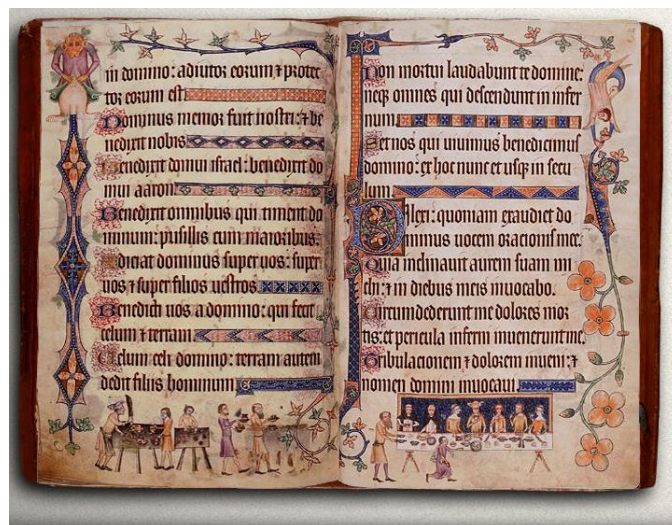 in domino: adiutor eorum ⁊ protec
tor eorum est.
Dominus memor fuit nostri: ⁊ be
nedixit nobis
Benedixit domui israel: benedixit do
mui aaron
Benedixit omnibus qui timent do
minum: pusillis cum maioribus.
Adiciat dominus super uos: super
uos ⁊ super filios uestros
Benedicti uos a domino: qui fecit
celum ⁊ terram
Celum celi domino: terram autem
dedit filiis hominum
Non mortui laudabunt te domine:
neqꝫ omnes qui descendunt in infer
num
Set nos qui uiuimus benedicimus
domino: ex hoc nunc et usqꝫ in secu
lum
Dilexi: quoniam exaudiet do
minus uocem oracionis mee.
Quia inclinauit aurem suam mi
chi: ⁊ in diebus meis inuocabo.
Circumdederunt me dolores mor
tis: et pericula inferni inuenerunt me.
Tribulacionem ⁊ dolorem inueni: ⁊
nomen domini inuocaui